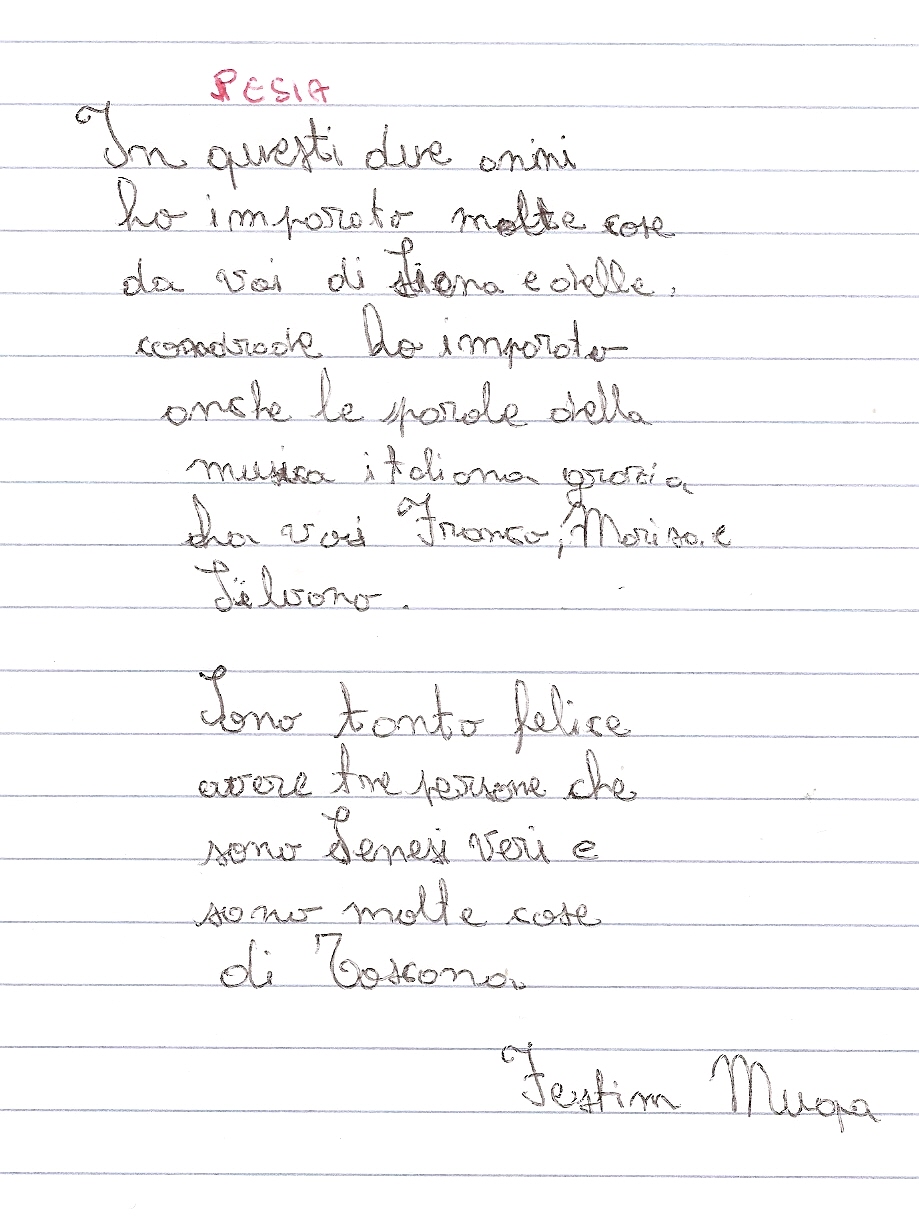 PESIA
In questi due anni
ho imparato molte cose
da voi di Siena e delle,
ho imparato
anche le parole della
musica italiana grazia
ha voi Franco, Marisa e
Silvano.
Sono tanto felice
avere tre persone che
sono Senesi veri e
sono molte cose
di Toscana.
Festim